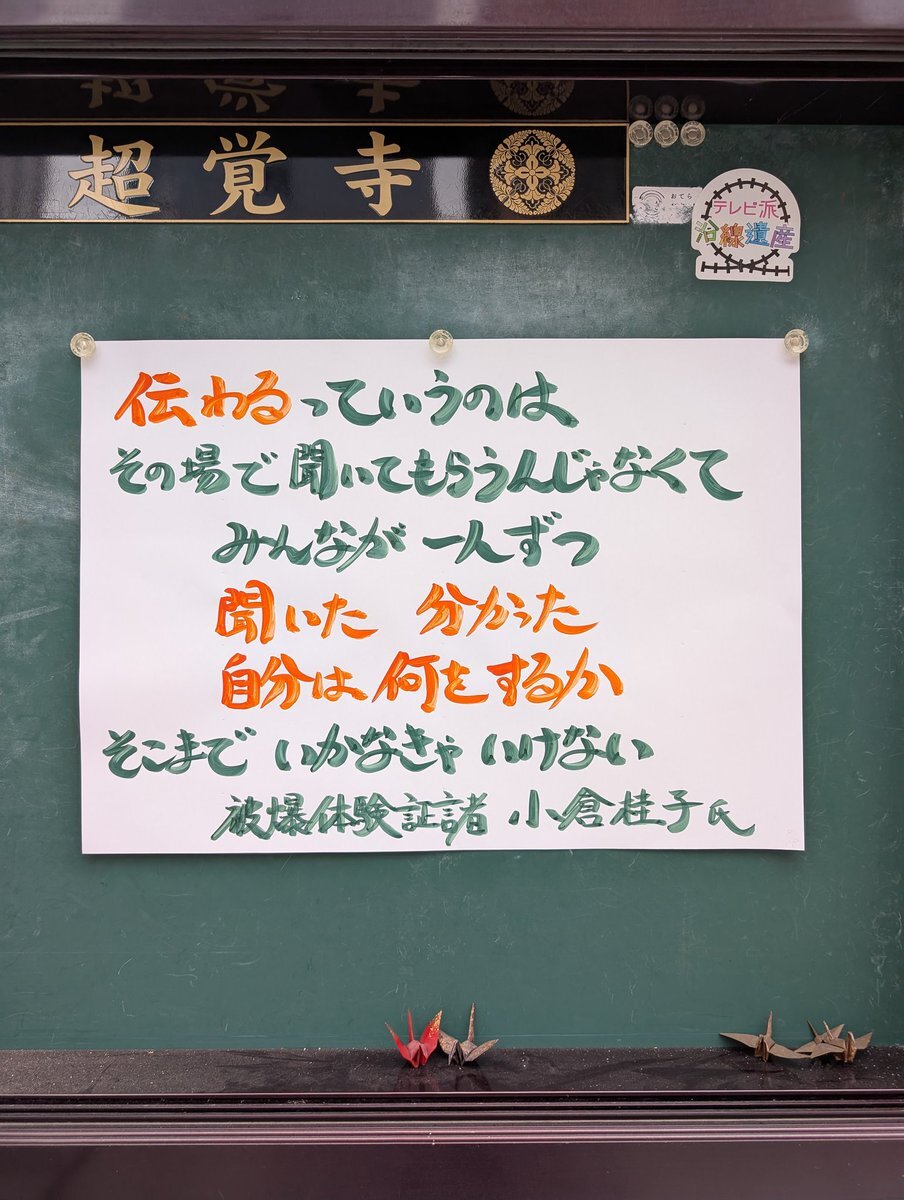 超覚寺
おてら
テレビ派
沿線遺産
伝わるっていうのは
その場で聞いてもらうんじゃなくて
みんなが一人ずつ
聞いた 分かった
自分は何をするか
そこまで いかなきゃ いけない
被爆体験証言者 小倉桂子氏